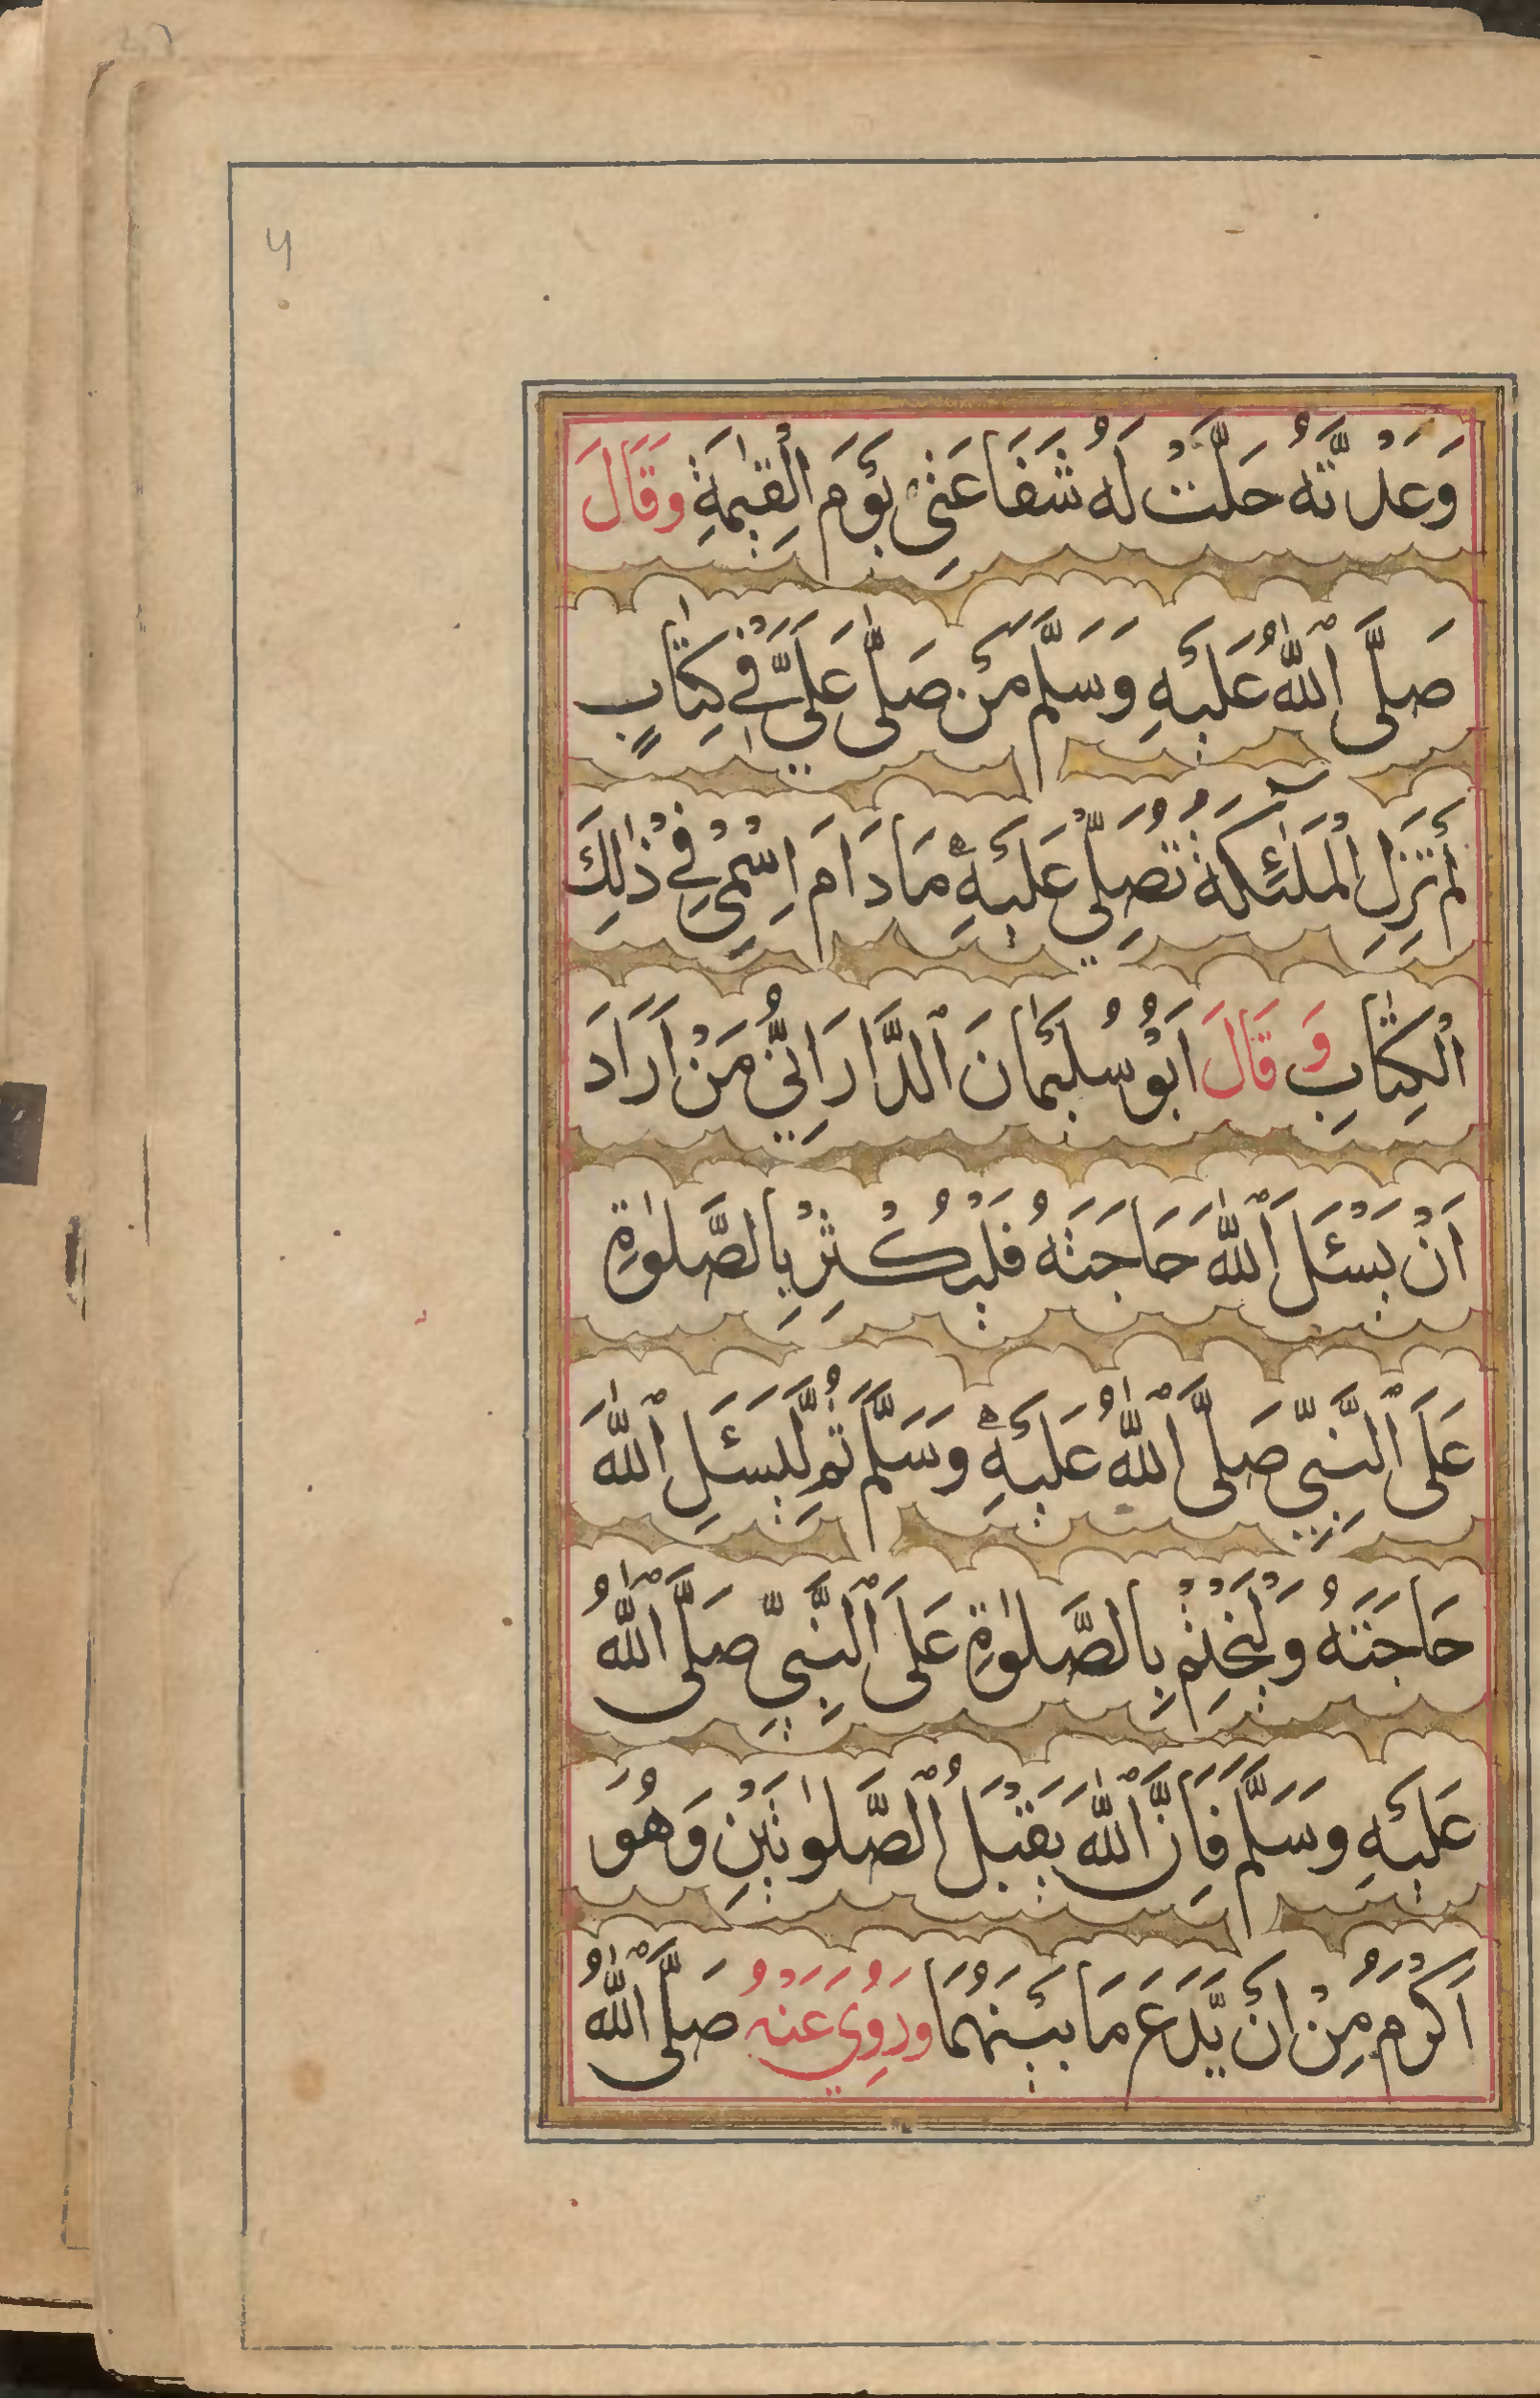 وَعَدْتَّهُ حَلَّتْ لَهُ شَفَاعَتِيْ يَوْمَ الْقِيٰمَةِ وَقَالَ
صَلَّى اللّٰهُ عَلَيْهِ وَسَلَّمَ مَنْ صَلّٰى عَلَيَّ فِيْ كِتٰابٍ
لَمْ تَزَلِ الْمَلٰٓئِكَةُ تُصَلِّيْ عَلَيْهِ مَادَامَ اِسْمِيْ فِيْ ذٰلِكَ
الْكِتٰابِ وَقَالَ اَبُوْ سُلَيْمٰانَ الدَّارَانِيُّ مَنْ اَرَادَ
اَنْ يَسْئَلَ اللّٰهَ حَاجَتَهُ فَلْيُكْثِرْ بِالصَّلٰوةِ
عَلَى النَّبِيِّ صَلَّى اللّٰهُ عَلَيْهِ وَسَلَّمَ ثُمَّ لْيَسْئَلِ اللّٰهَ
حَاجَتَهُ وَلْيَخْتِمْ بِالصَّلٰوةِ عَلَى النَّبِيِّ صَلَّى اللّٰهُ
عَلَيْهِ وَسَلَّمَ فَاِنَّ اللّٰهَ يَقْبَلُ الصَّلٰوتَيْنِ وَهُوَ
اَكْرَمُ مِنْ اَنْ يَّدَعَ مَا بَيْنَهُمَا وَرُوِيَ عَنْهُ صَلَّى اللّٰهُ